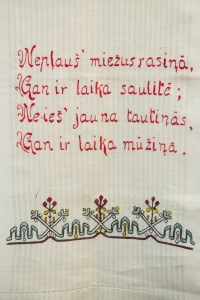 Nepļauš' miežus rasiņā,
Gan ir laika saulītē;
Neieš' jauna tautiņās,
Gan ir laika mūžiņā.